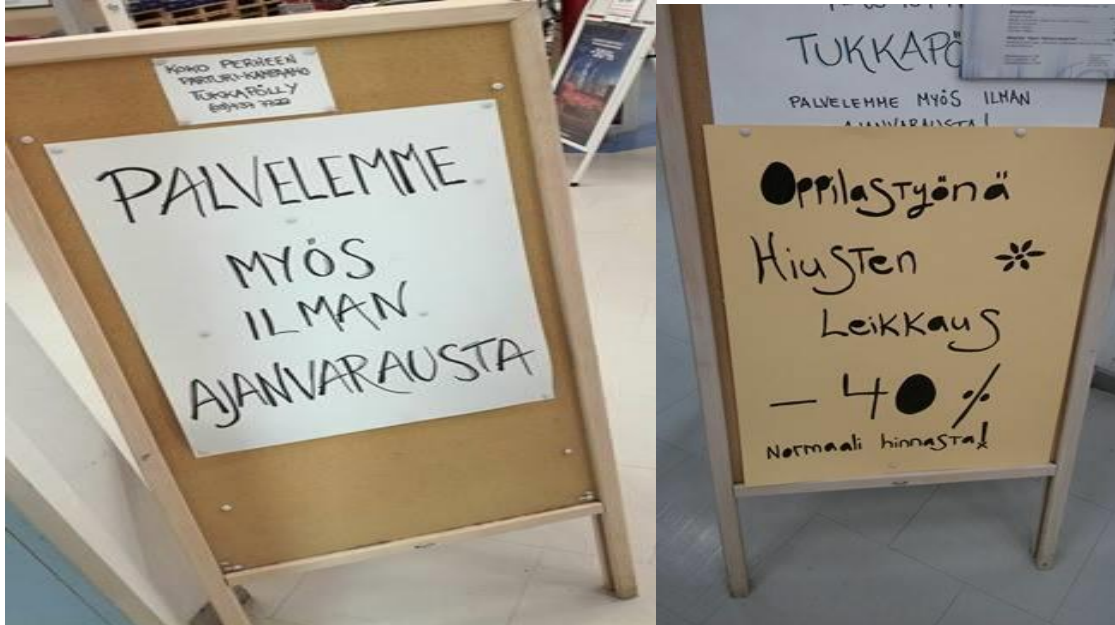 KOKO PERHEEN
PARTURI-KAMPAAMO
TUKKAPÖLLY
PALVELEMME
MYÖS
ILMAN
AJANVARAUSTA
TUKKAPÖ
PALVELEMME MYÖS ILMAN
AJANVARAUSTA!
OppilasTyönä
HiusTen
Leikkaus
- 40 %
Normaali hinnasTa!